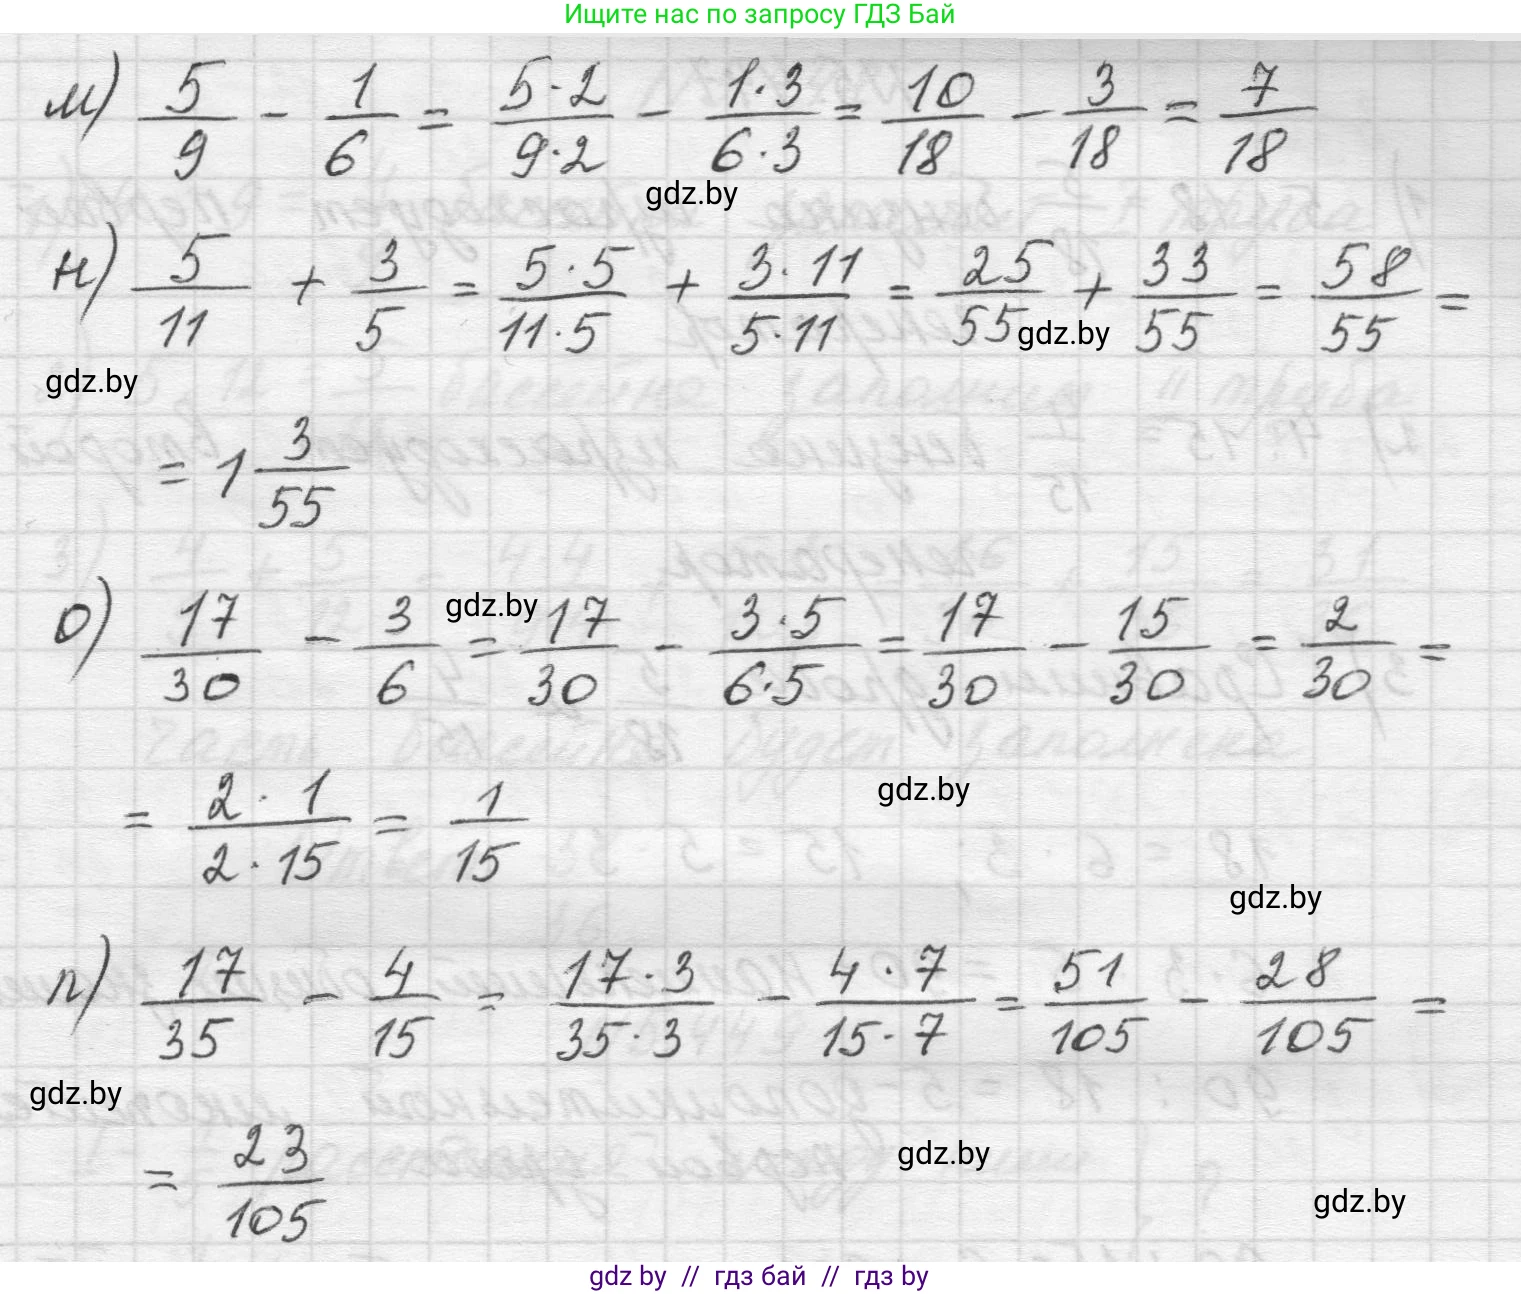 Ищите нас по запросу ГДЗ Бай
м) 5/9 - 1/6 = 5·2/9·2 - 1·3/6·3 = 10/18 - 3/18 = 7/18
gdz.by
н) 5/11 + 3/5 = 5·5/11·5 + 3·11/5·11 = 25/55 + 33/55 = 58/55 =
gdz.by
gdz.by
= 1 3/55
о) 17/30 - 3/6 = 17/30 - 3·5/6·5 = 17/30 - 15/30 = 2/30 =
gdz.by
= 2·1/2·15 = 1/15
gdz.by
gdz.by
п) 17/35 - 4/15 = 17·3/35·3 - 4·7/15·7 = 51/105 - 28/105 =
gdz.by
= 23/105
gdz.by
gdz.by
gdz by // гдз бай // гдз by